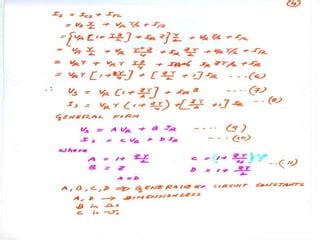 (4)
I_S = I_C2 + I_PL
= V_S Y/2 + V_R Y/2 + I_R
= {V_R [1 + YZ/2] + I_R Z} Y/2 + V_R Y/2 + I_R
= V_R Y/2 + V_R Y²Z/4 + I_R ZY/2 + V_R Y/2 + I_R
= V_R Y + V_R Y YZ/4 + I_R + I_R ZY/2
= V_R Y [1 + ZY/4] + [ZY/2 + 1] I_R --- (6)
∴ V_S = V_R [1 + ZY/2] + I_R Z --- (7)
I_S = V_R Y (1 + ZY/4) + [ZY/2 + 1] I_R -- (8)
GENERAL FORM
V_S = A V_R + B I_R ---- (9)
I_S = C V_R + D I_R ---- (10)
where
A = 1 + ZY/2 C = (1 + ZY/4) Y
B = Z D = 1 + ZY/2 -- (11)
A = D
A, B, C, D ⇒ GENERALIZED CIRCUIT CONSTANTS
A, D → DIMENSIONLESS
B in Ωs
C in ℧s